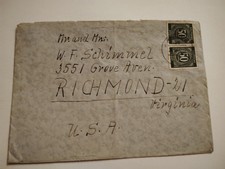 Mr and Mrs.
W. F. Schimmel
3551 Grove Aven.
RICHMOND-21
Virginia
U.S.A.
50
50